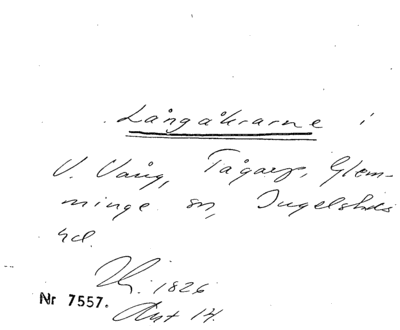 Långåkrarne i
V. Vång, Tågarp, Glem-
minge sn, Ingelstads
hd.
1826
Nr 7557.
Akt 14.